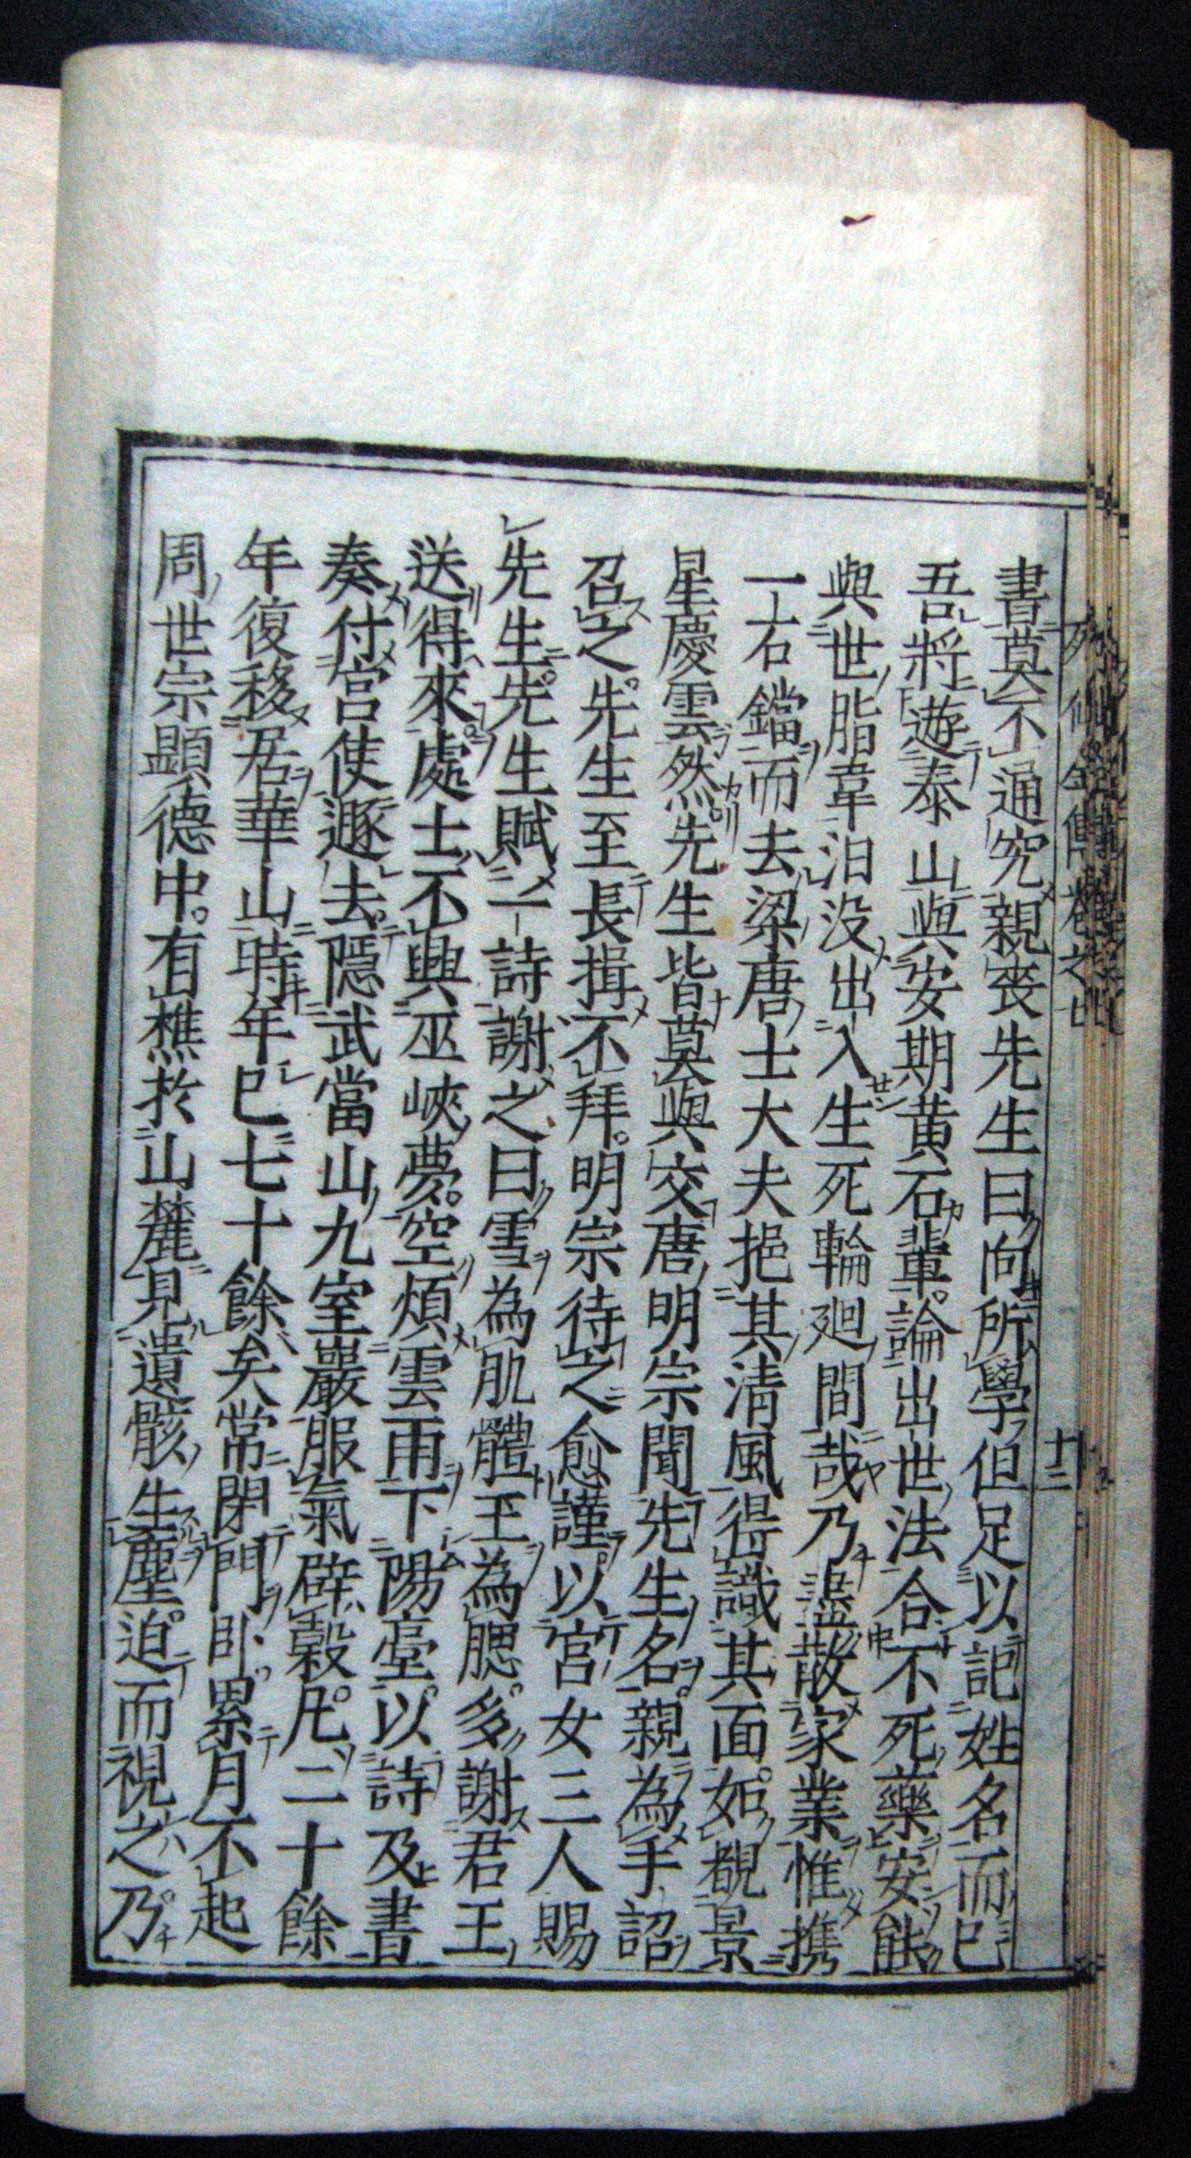 書莫不通究親喪先生曰向所學但足以記姓名而已
吾將遊泰山與安期黃石輩論出世法合不死藥安能
與世脂韋汨沒出入生死輪廻間哉乃盡散家業惟携
一石鐺而去梁唐士大夫挹其清風得識其面如覩景
星慶雲然先生皆莫與交唐明宗聞先生名親為手詔
召之先生至長揖不拜明宗待之愈謹以宮女三人賜
先生先生賦一詩謝之曰雪為肌體玉為腮多謝君王
送得來處士不興巫峽夢空煩雲雨下陽臺以詩及書
奏付宮使遂去隱武當山九室巖服氣辟穀凡二十餘
年復移居華山時年已七十餘矣常閉門臥累月不起
周世宗顯德中有樵於山麓見遺骸生塵迫而視之乃
列仙全傳卷之七
十二